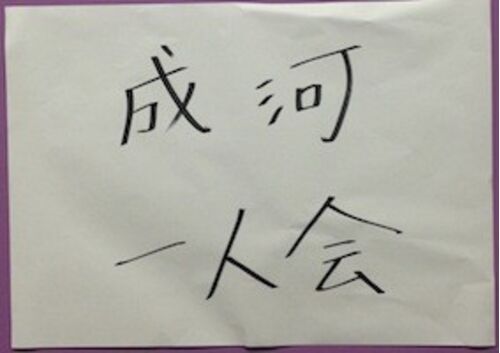 成河
一人会